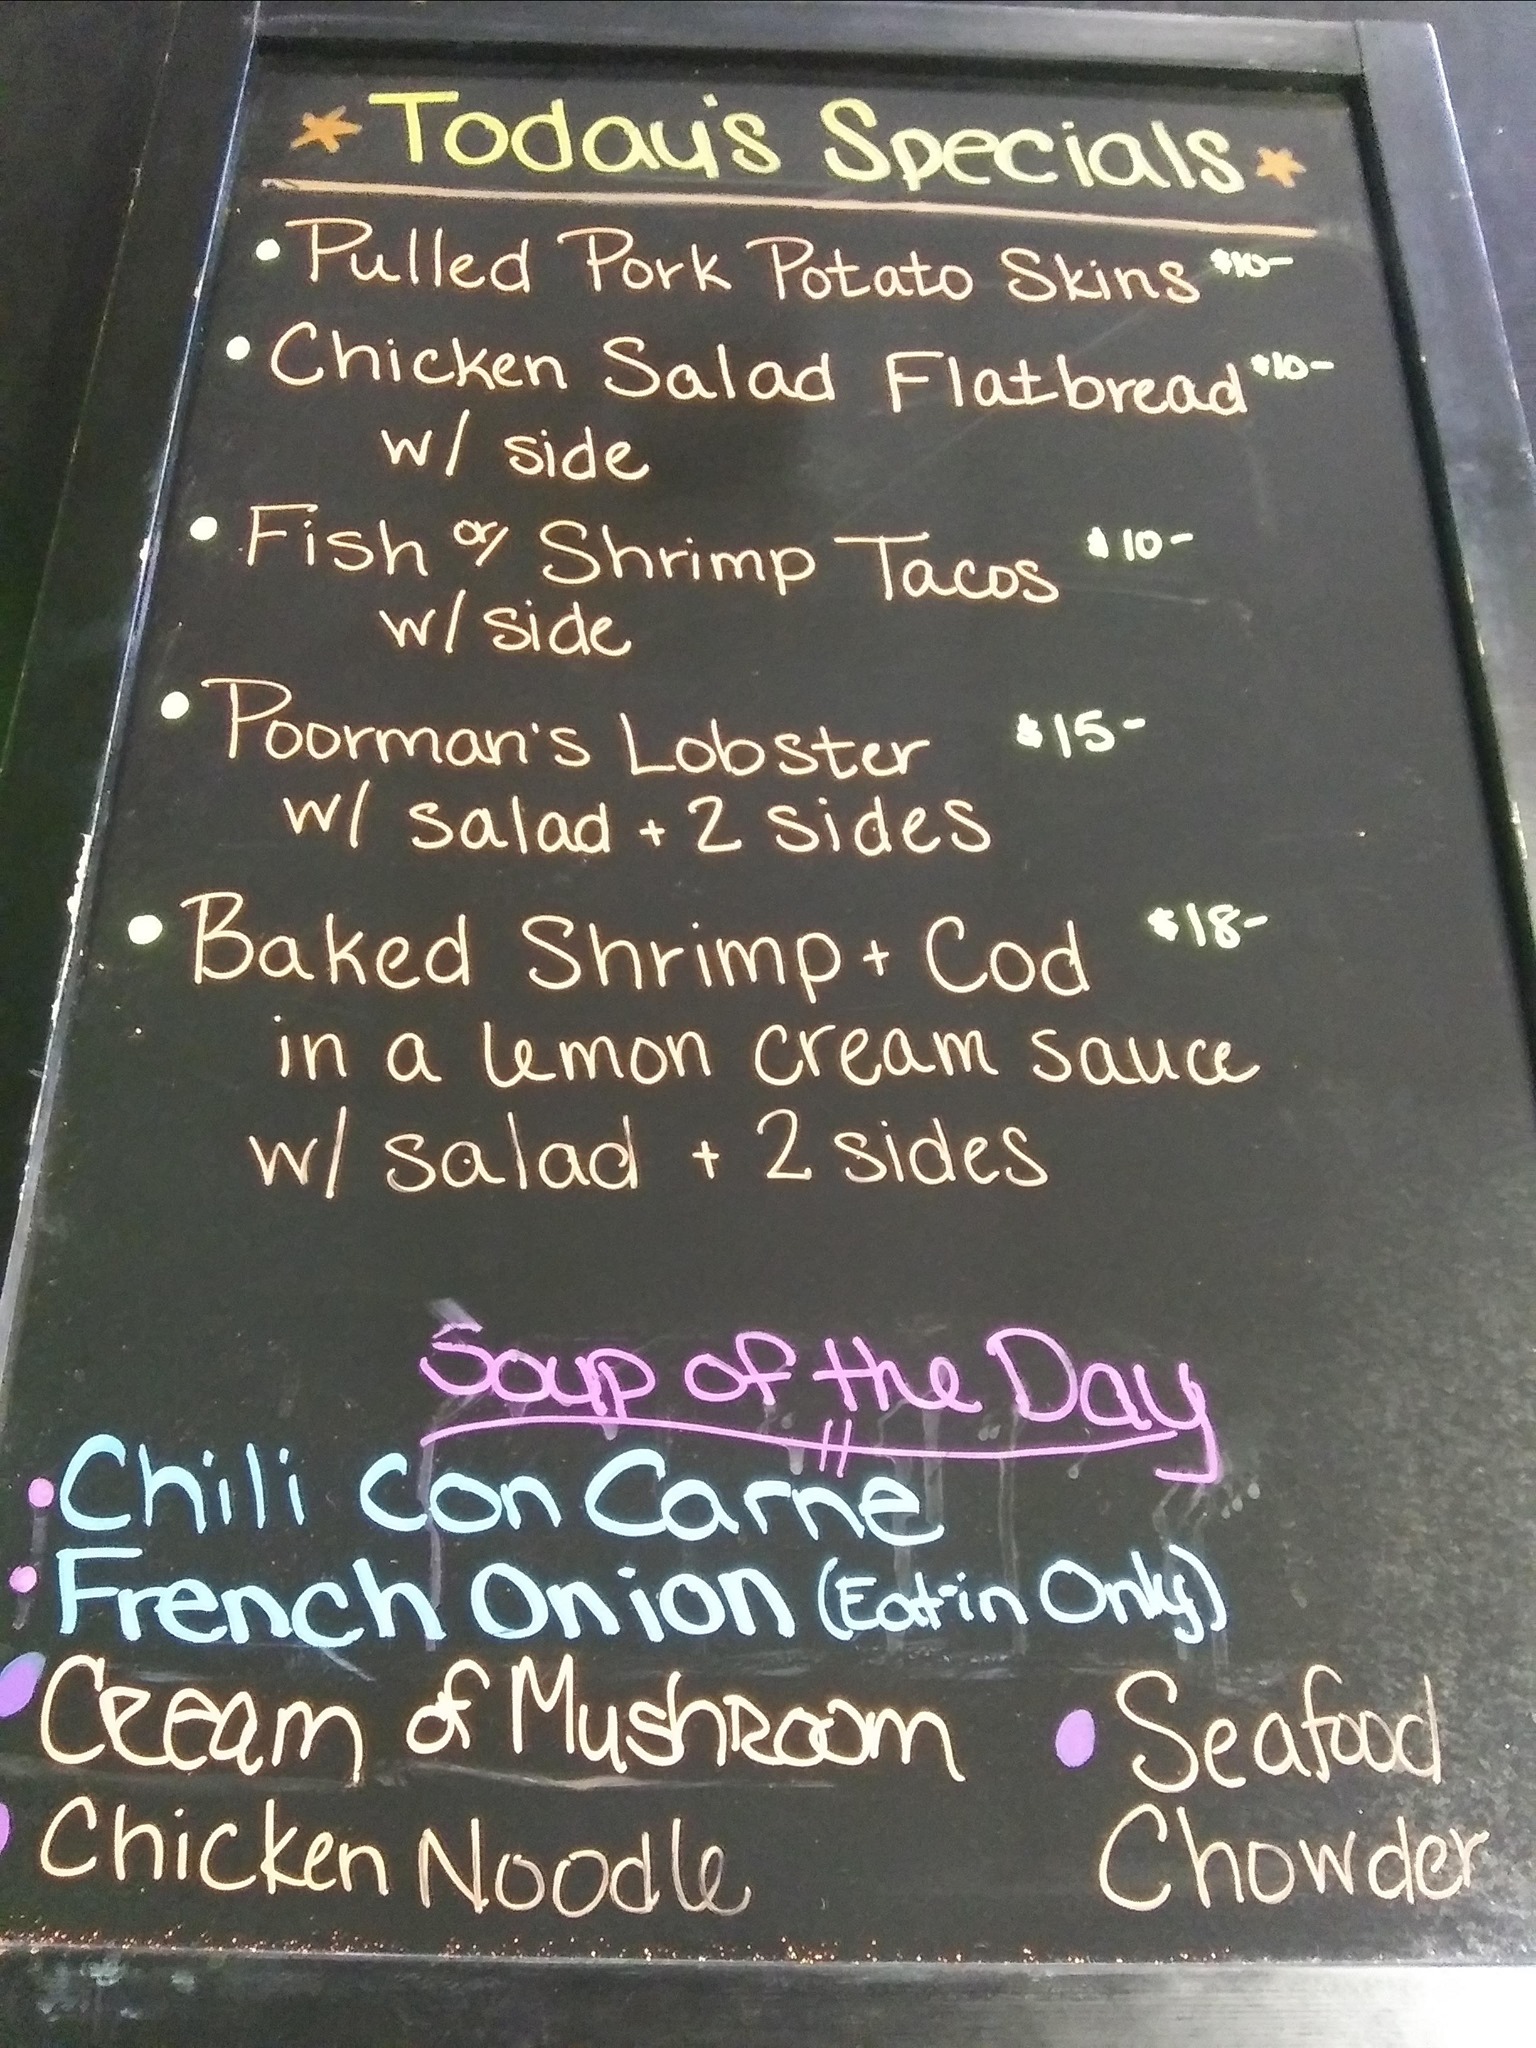 Today's Specials
• Pulled Pork Potato Skins $10-
• Chicken Salad Flatbread $10-
w/ side
• Fish or Shrimp Tacos $10-
w/ side
• Poorman's Lobster $15-
w/ salad + 2 sides
• Baked Shrimp + Cod $18-
in a lemon cream sauce
w/ salad + 2 sides
Soup of the Day
• Chili Con Carne
• French Onion (Eat-in Only)
• Cream of Mushroom
• Chicken Noodle
• Seafood
Chowder